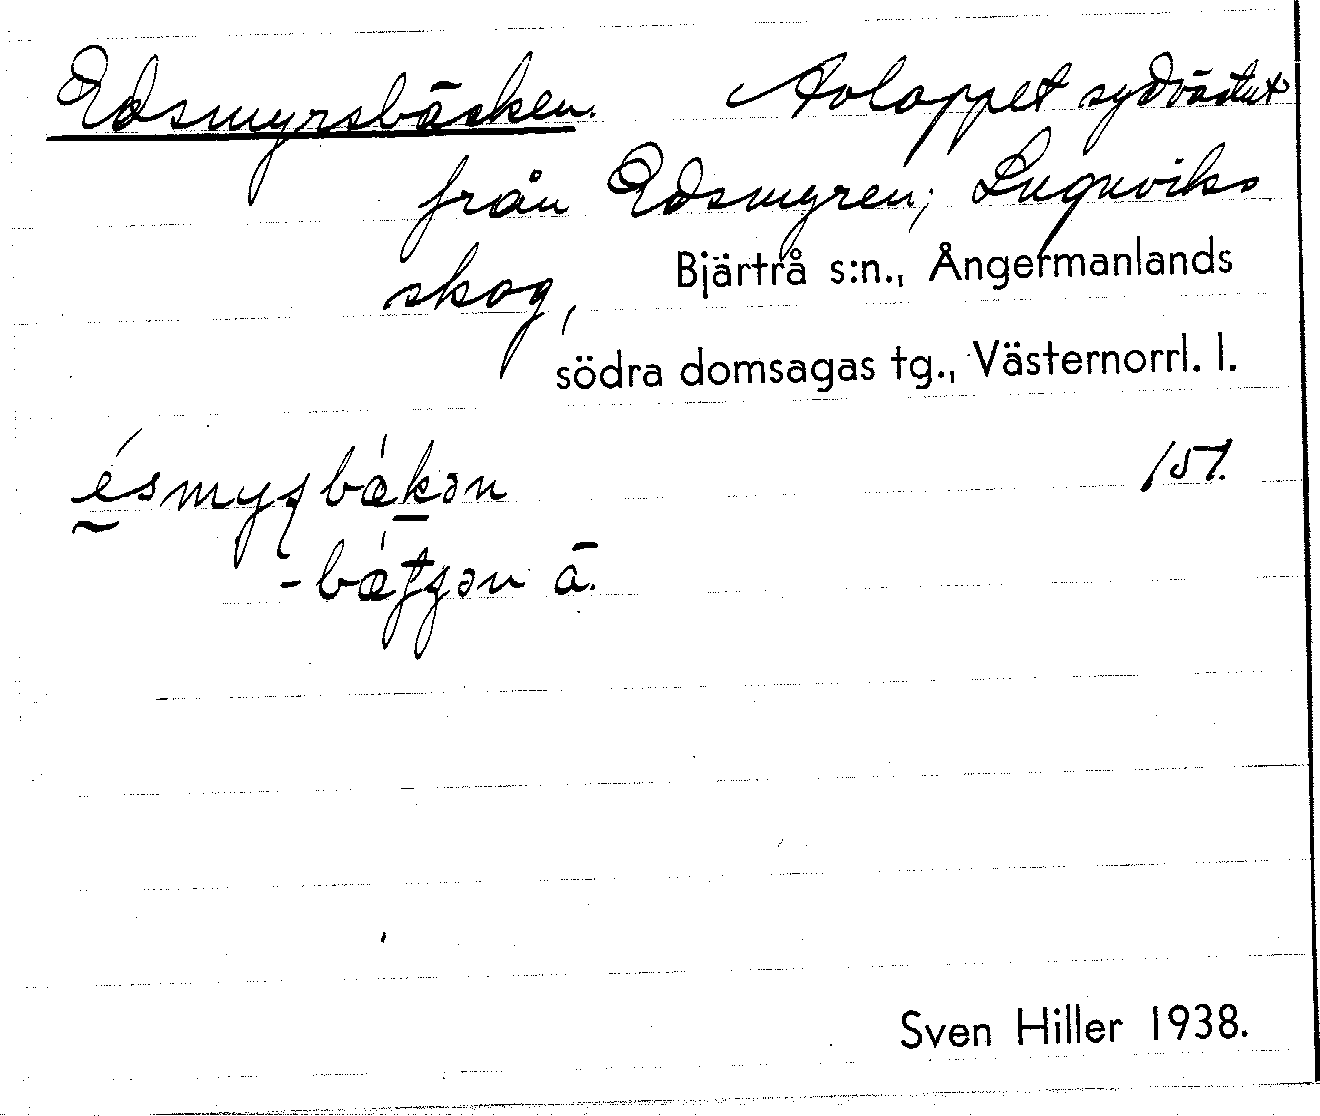 Edsmyrsbäcken. Avloppet sydvästut
från Edsmyren; Lugnviks
skog, Bjärtrå s:n., Ångermanlands
södra domsagas tg., Västernorrl. l.
151.
-
ä.
Sven Hiller 1938.